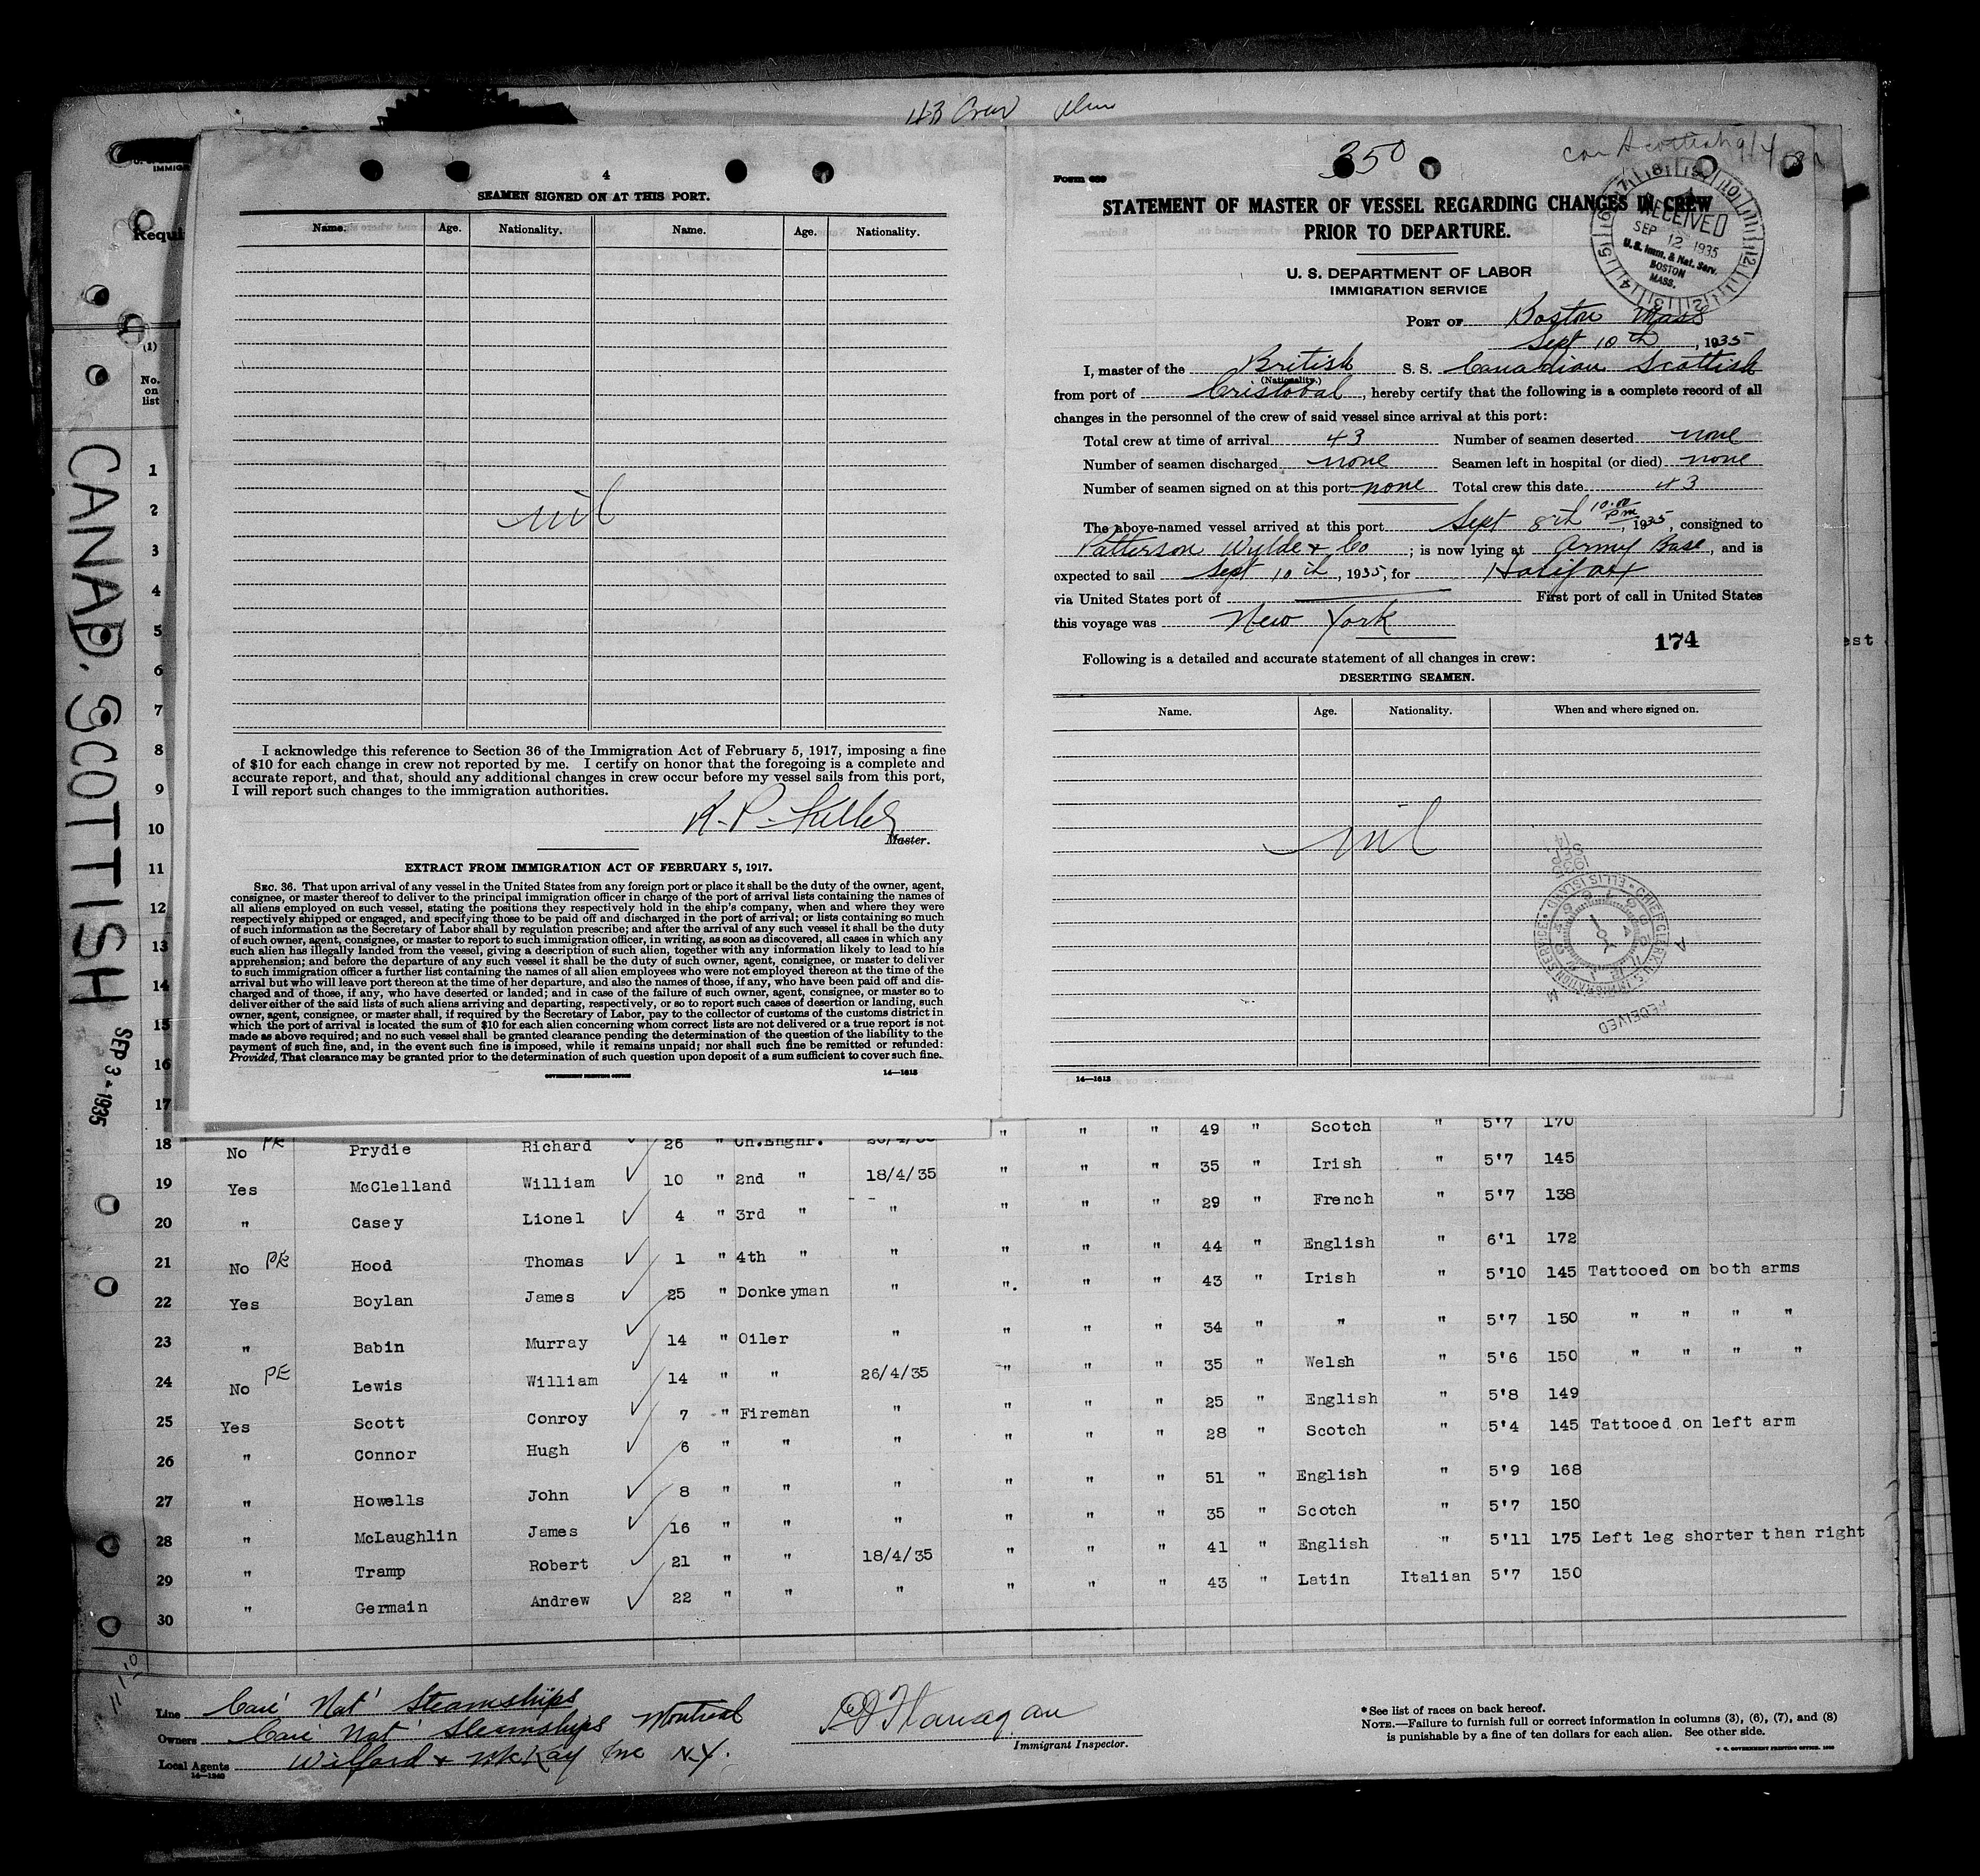 43 Crew
4
SEAMEN SIGNED ON AT THIS PORT.
Name. Age. Nationality. Name. Age. Nationality.
nil
I acknowledge this reference to Section 36 of the Immigration Act of February 5, 1917, imposing a fine
of $10 for each change in crew not reported by me. I certify on honor that the foregoing is a complete and
accurate report, and that, should any additional changes in crew occur before my vessel sails from this port,
I will report such changes to the immigration authorities.
Master.
EXTRACT FROM IMMIGRATION ACT OF FEBRUARY 5, 1917.
SEC. 36. That upon arrival of any vessel in the United States from any foreign port or place it shall be the duty of the owner, agent,
consignee, or master thereof to deliver to the principal immigration officer in charge of the port of arrival lists containing the names of
all aliens employed on such vessel, stating the positions they respectively hold in the ship's company, when and where they were
respectively shipped or engaged, and specifying those to be paid off and discharged in the port of arrival; or lists containing so much
of such information as the Secretary of Labor shall by regulation prescribe; and after the arrival of any such vessel it shall be the duty
of such owner, agent, consignee, or master to report to such immigration officer, in writing, as soon as discovered, all cases in which any
such alien has illegally landed from the vessel, giving a description of such alien, together with any information likely to lead to his
apprehension; and before the departure of any such vessel it shall be the duty of such owner, agent, consignee, or master to deliver
to such immigration officer a further list containing the names of all alien employees who were not employed thereon at the time of the
arrival but who will leave port thereon at the time of her departure, and also the names of those, if any, who have been paid off and dis-
charged and of those, if any, who have deserted or landed; and in case of the failure of such owner, agent, consignee, or master so to
deliver either of the said lists of such aliens arriving and departing, respectively, or so to report such cases of desertion or landing, such
owner, agent, consignee, or master shall, if required by the Secretary of Labor, pay to the collector of customs of the customs district in
which the port of arrival is located the sum of $10 for each alien concerning whom correct lists are not delivered or a true report is not
made as above required; and no such vessel shall be granted clearance pending the determination of the question of the liability to the
payment of such fine, and, in the event such fine is imposed, while it remains unpaid; nor shall such fine be remitted or refunded:
Provided, That clearance may be granted prior to the determination of such question upon deposit of a sum sufficient to cover such fine.
GOVERNMENT PRINTING OFFICE 14—1613
350
Form 689
STATEMENT OF MASTER OF VESSEL REGARDING CHANGES IN CREW
PRIOR TO DEPARTURE.
RECEIVED
SEP 12 1935
U.S. Imm. & Nat. Serv.
BOSTON
MASS.
U. S. DEPARTMENT OF LABOR
IMMIGRATION SERVICE
PORT OF Boston Mass
Sept 10th, 1935
I, master of the British S. S. Canadian Scottish
(Nationality.)
from port of Cristobal, hereby certify that the following is a complete record of all
changes in the personnel of the crew of said vessel since arrival at this port:
Total crew at time of arrival 43 Number of seamen deserted none
Number of seamen discharged none Seamen left in hospital (or died) none
Number of seamen signed on at this port none Total crew this date 43
The above-named vessel arrived at this port Sept 8th 10.00 pm, 1935, consigned to
Patterson Wylde & Co; is now lying at Army Base, and is
expected to sail Sept 10th, 1935, for Halifax
via United States port of First port of call in United States
this voyage was New York
174
Following is a detailed and accurate statement of all changes in crew:
DESERTING SEAMEN.
Name. Age. Nationality. When and where signed on.
nil
RECEIVED
14—1613
CANAD. SCOTTISH SEP 3 - 1935
IMMIG
Requi
(1)
No.
on
list
1
2
3
4
5
6
7
8
9
10
11
12
13
14
15
16
17
est
18 No PE Prydie Richard 26 " Ch.Engnr. " " " 49 " Scotch " 5'7 170
19 Yes McClelland William 10 " 2nd " 18/4/35 " " " 35 " Irish " 5'7 145
20 " Casey Lionel 4 " 3rd " " " " " 29 " French " 5'7 138
21 No PE Hood Thomas 1 " 4th " " " " " 44 " English " 6'1 172
22 Yes Boylan James 25 " Donkeyman " " " " 43 " Irish " 5'10 145 Tattooed on both arms
23 " Babin Murray 14 " Oiler " " " " 34 " " " 5'7 150 " " " "
24 No PE Lewis William 14 " " 26/4/35 " " " 35 " Welsh " 5'6 150 " " " "
25 Yes Scott Conroy 7 " Fireman " " " " 25 " English " 5'8 149
26 " Connor Hugh 6 " " " " " " 28 " Scotch " 5'4 145 Tattooed on left arm
27 " Howells John 8 " " " " " " 51 " English " 5'9 168
28 " McLaughlin James 16 " " " " " " 35 " Scotch " 5'7 150
29 " Tramp Robert 21 " " 18/4/35 " " " 41 " English " 5'11 175 Left leg shorter than right
30 " Germain Andrew 22 " " " " " " 43 " Latin Italian 5'7 150
Line Can' Nat' Steamships
Owners Can' Nat' Steamships Montreal
Local Agents Wilford & McKay Inc N.Y.
14—1240
Immigrant Inspector.
*See list of races on back hereof.
NOTE.—Failure to furnish full or correct information in columns (3), (6), (7), and (8)
is punishable by a fine of ten dollars for each alien. See other side.